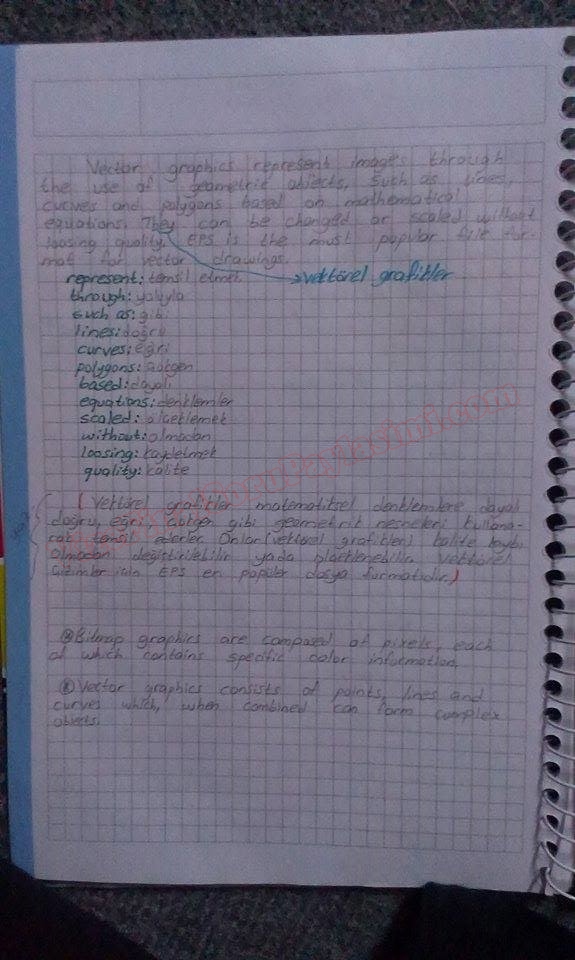 Vector graphics represent images through
the use of geometric objects, such as lines,
curves and polygons based on mathematical
equations. They can be changed or scaled without
loosing quality. EPS is the must popular file fur-
mat for vector drawings.
represent: temsil etmek
→ vektörel grafikler
through: yoluyla
such as: gibi
lines: doğru
curves: eğri
polygons: çokgen
based: dayalı
equations: denklemler
scaled: ölçeklemek
without: olmadan
loosing: kaybetmek
quality: kalite
(Vektörel grafikler matematiksel denklemlere dayalı
doğru, eğri çokgen gibi geometrik nesneleri kullana-
rak temsil ederler. Onlar (vektörel grafikler) kalite kaybı
olmadan değiştirilebilir yada ölçeklenebilir. Vektörel
çizimler için EPS en popüler dosya furmatıdır.)
Bitmap graphics are composed of pixels, each
of which contains specific color information.
Vector graphics consists of points, lines and
curves which, when combined can form complex
objects.